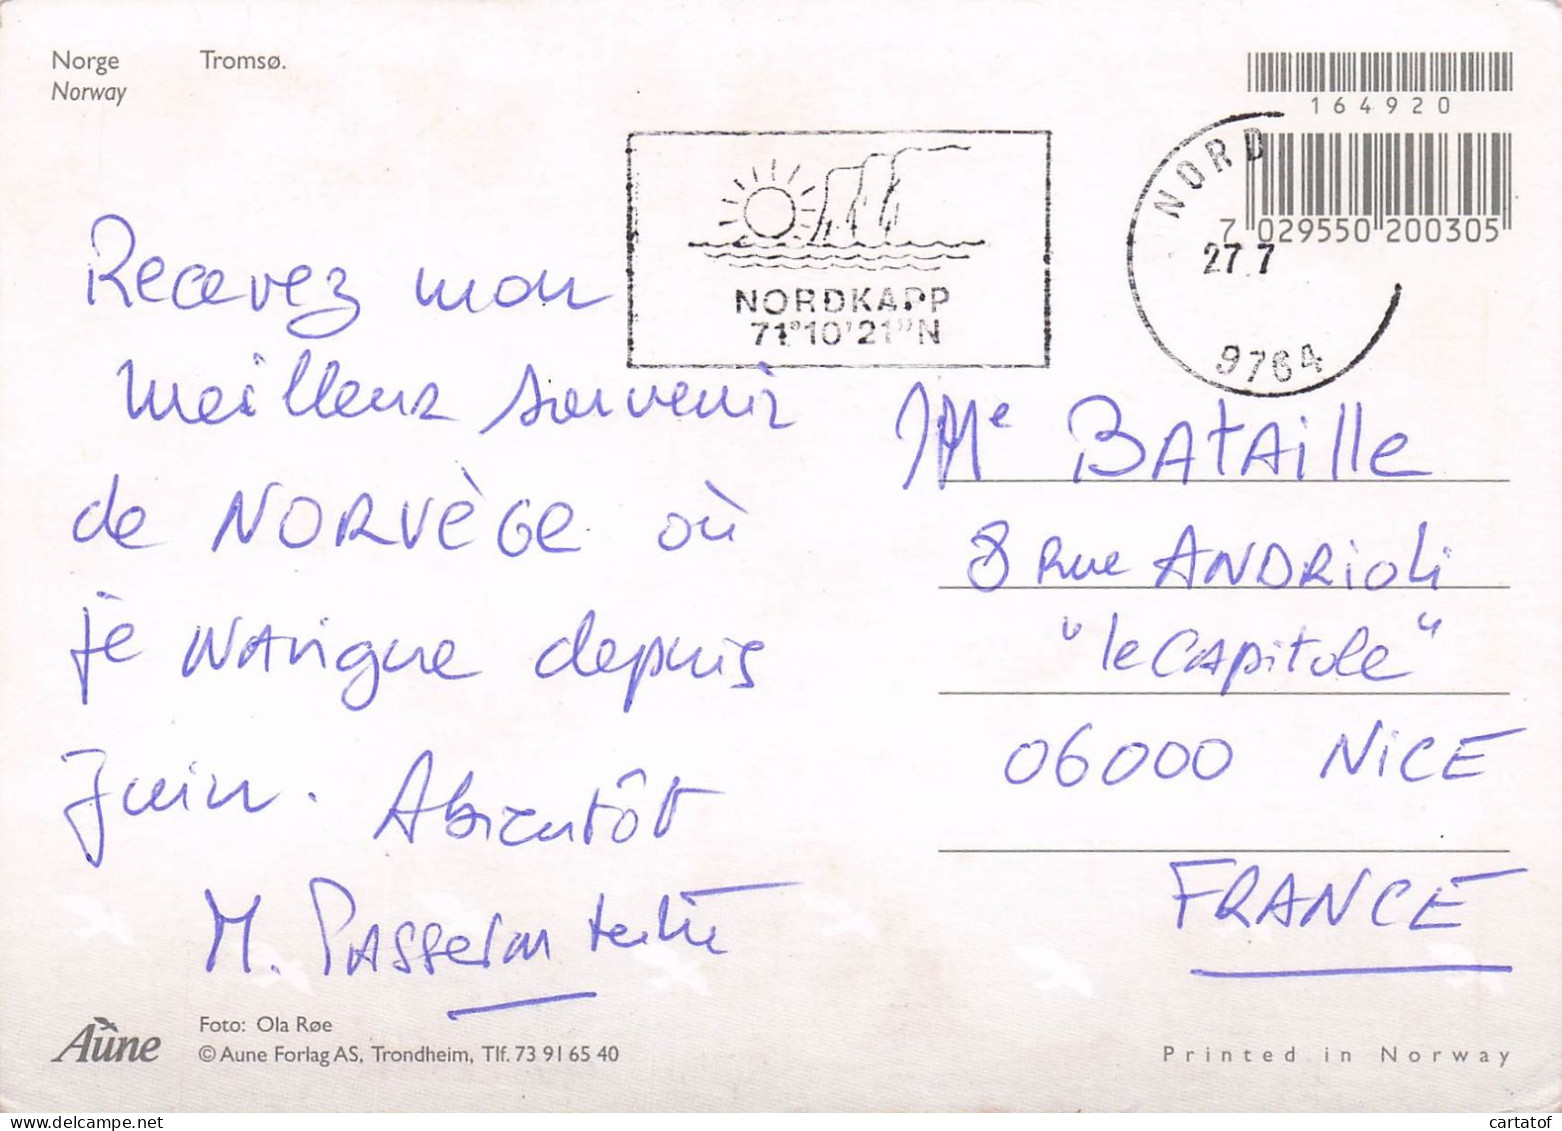 Norge Tromsø.
Norway
164920
7 029550 200305
NORD
27 7
9764
NORDKAPP
71°10'21"N
Recevez mon
meilleur souvenir
de NORVÈGE où
je NAvigue depuis
Juin. Abientôt
M. PASSeron
Me BATAille
8 Rue ANDRioli
"le CAPitole"
06000 NiCE
FRANCE
Aune
Foto: Ola Røe
© Aune Forlag AS, Trondheim, Tlf. 73 91 65 40
Printed in Norway
cartatof